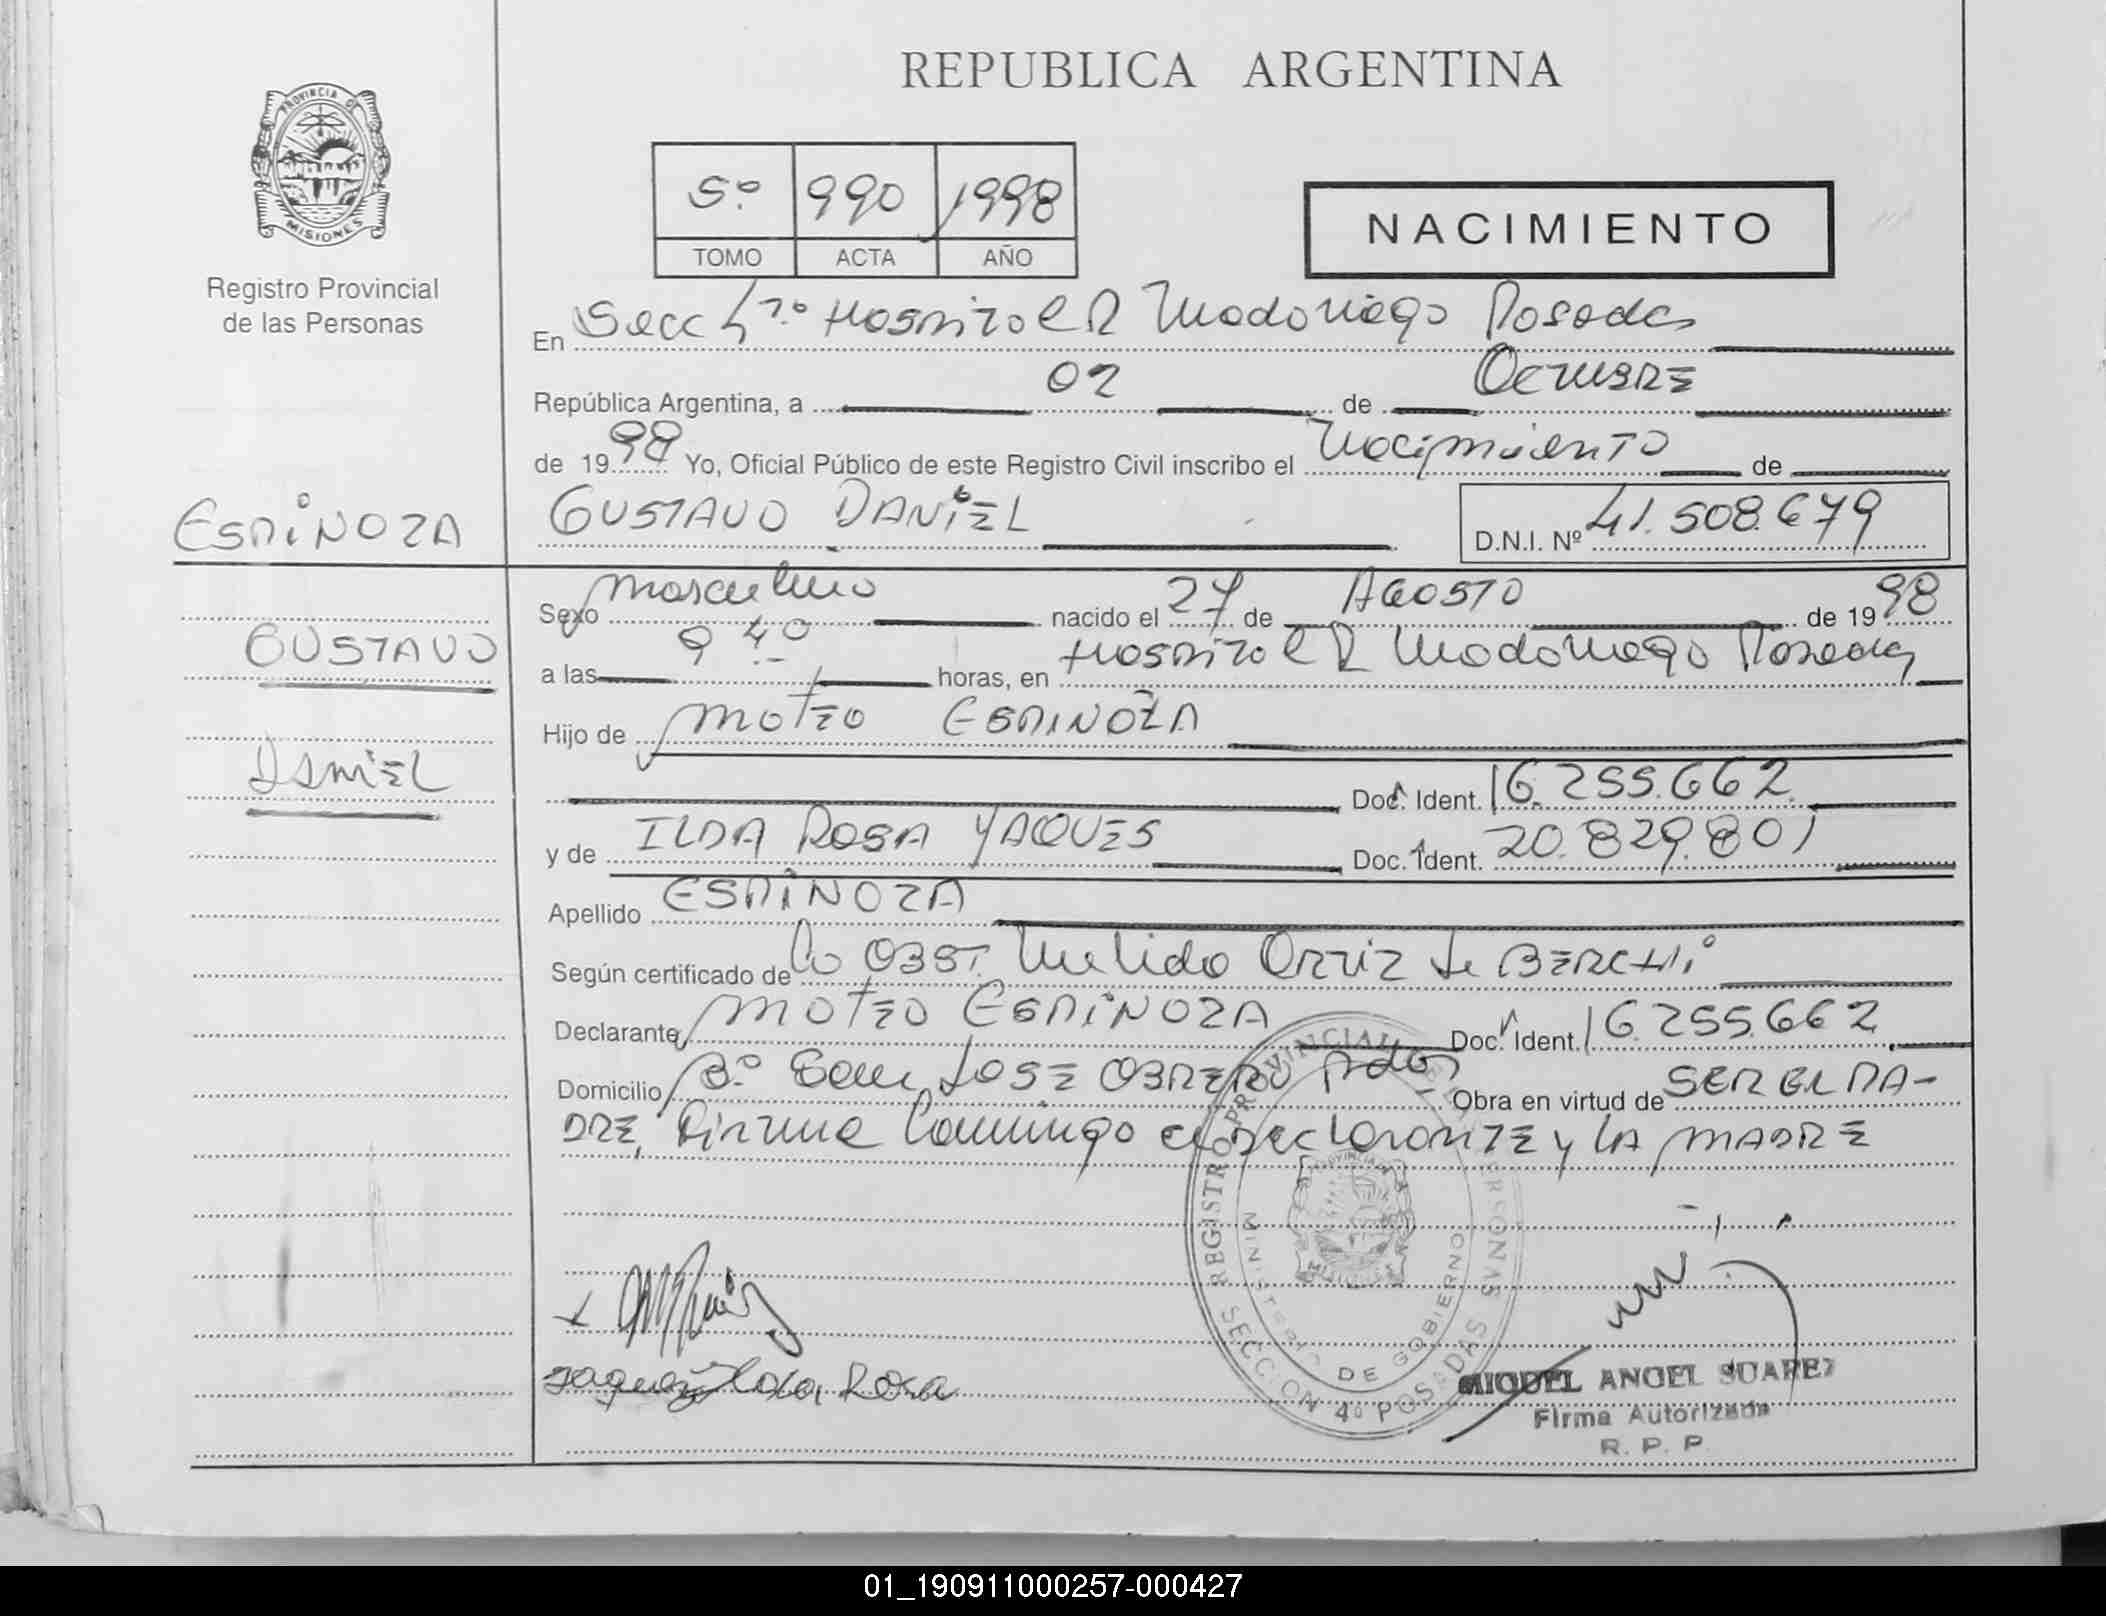 REPUBLICA ARGENTINA
PROVINCIA DE
MISIONES
Registro Provincial
de las Personas
5º 990 1998
TOMO ACTA AÑO
NACIMIENTO
En Secc 4º Hospital R Madariaga Posadas
República Argentina, a 02 de Octubre
de 1998 Yo, Oficial Público de este Registro Civil inscribo el Nacimiento de
ESPINOZA GUSTAVO DANIEL D.N.I. Nº 41.508.679
Sexo Masculino nacido el 27 de Agosto de 1998
GUSTAVO
a las 9 40 horas, en Hospital R Madariaga Posadas
Hijo de MATEO ESPINOZA
DANIEL
Doc. Ident. 16.255.662
y de ILDA ROSA YAQUES Doc. Ident. 20.829.801
Apellido ESPINOZA
Según certificado de la OBST. Nelida Ortiz de BERCHI
Declarante MATEO ESPINOZA Doc. Ident. 16.255.662
Domicilio Bº San JOSE OBRERO Pdas Obra en virtud de SER EL PA-
DRE, Firma Conmigo el Declarante y LA MADRE
REGISTRO PROVINCIAL DE LAS PERSONAS
MINISTERIO DE GOBIERNO
SECCION 4º POSADAS
Rosa
MIGUEL ANGEL SUAREZ
Firma Autorizada
R. P. P.
01_190911000257-000427